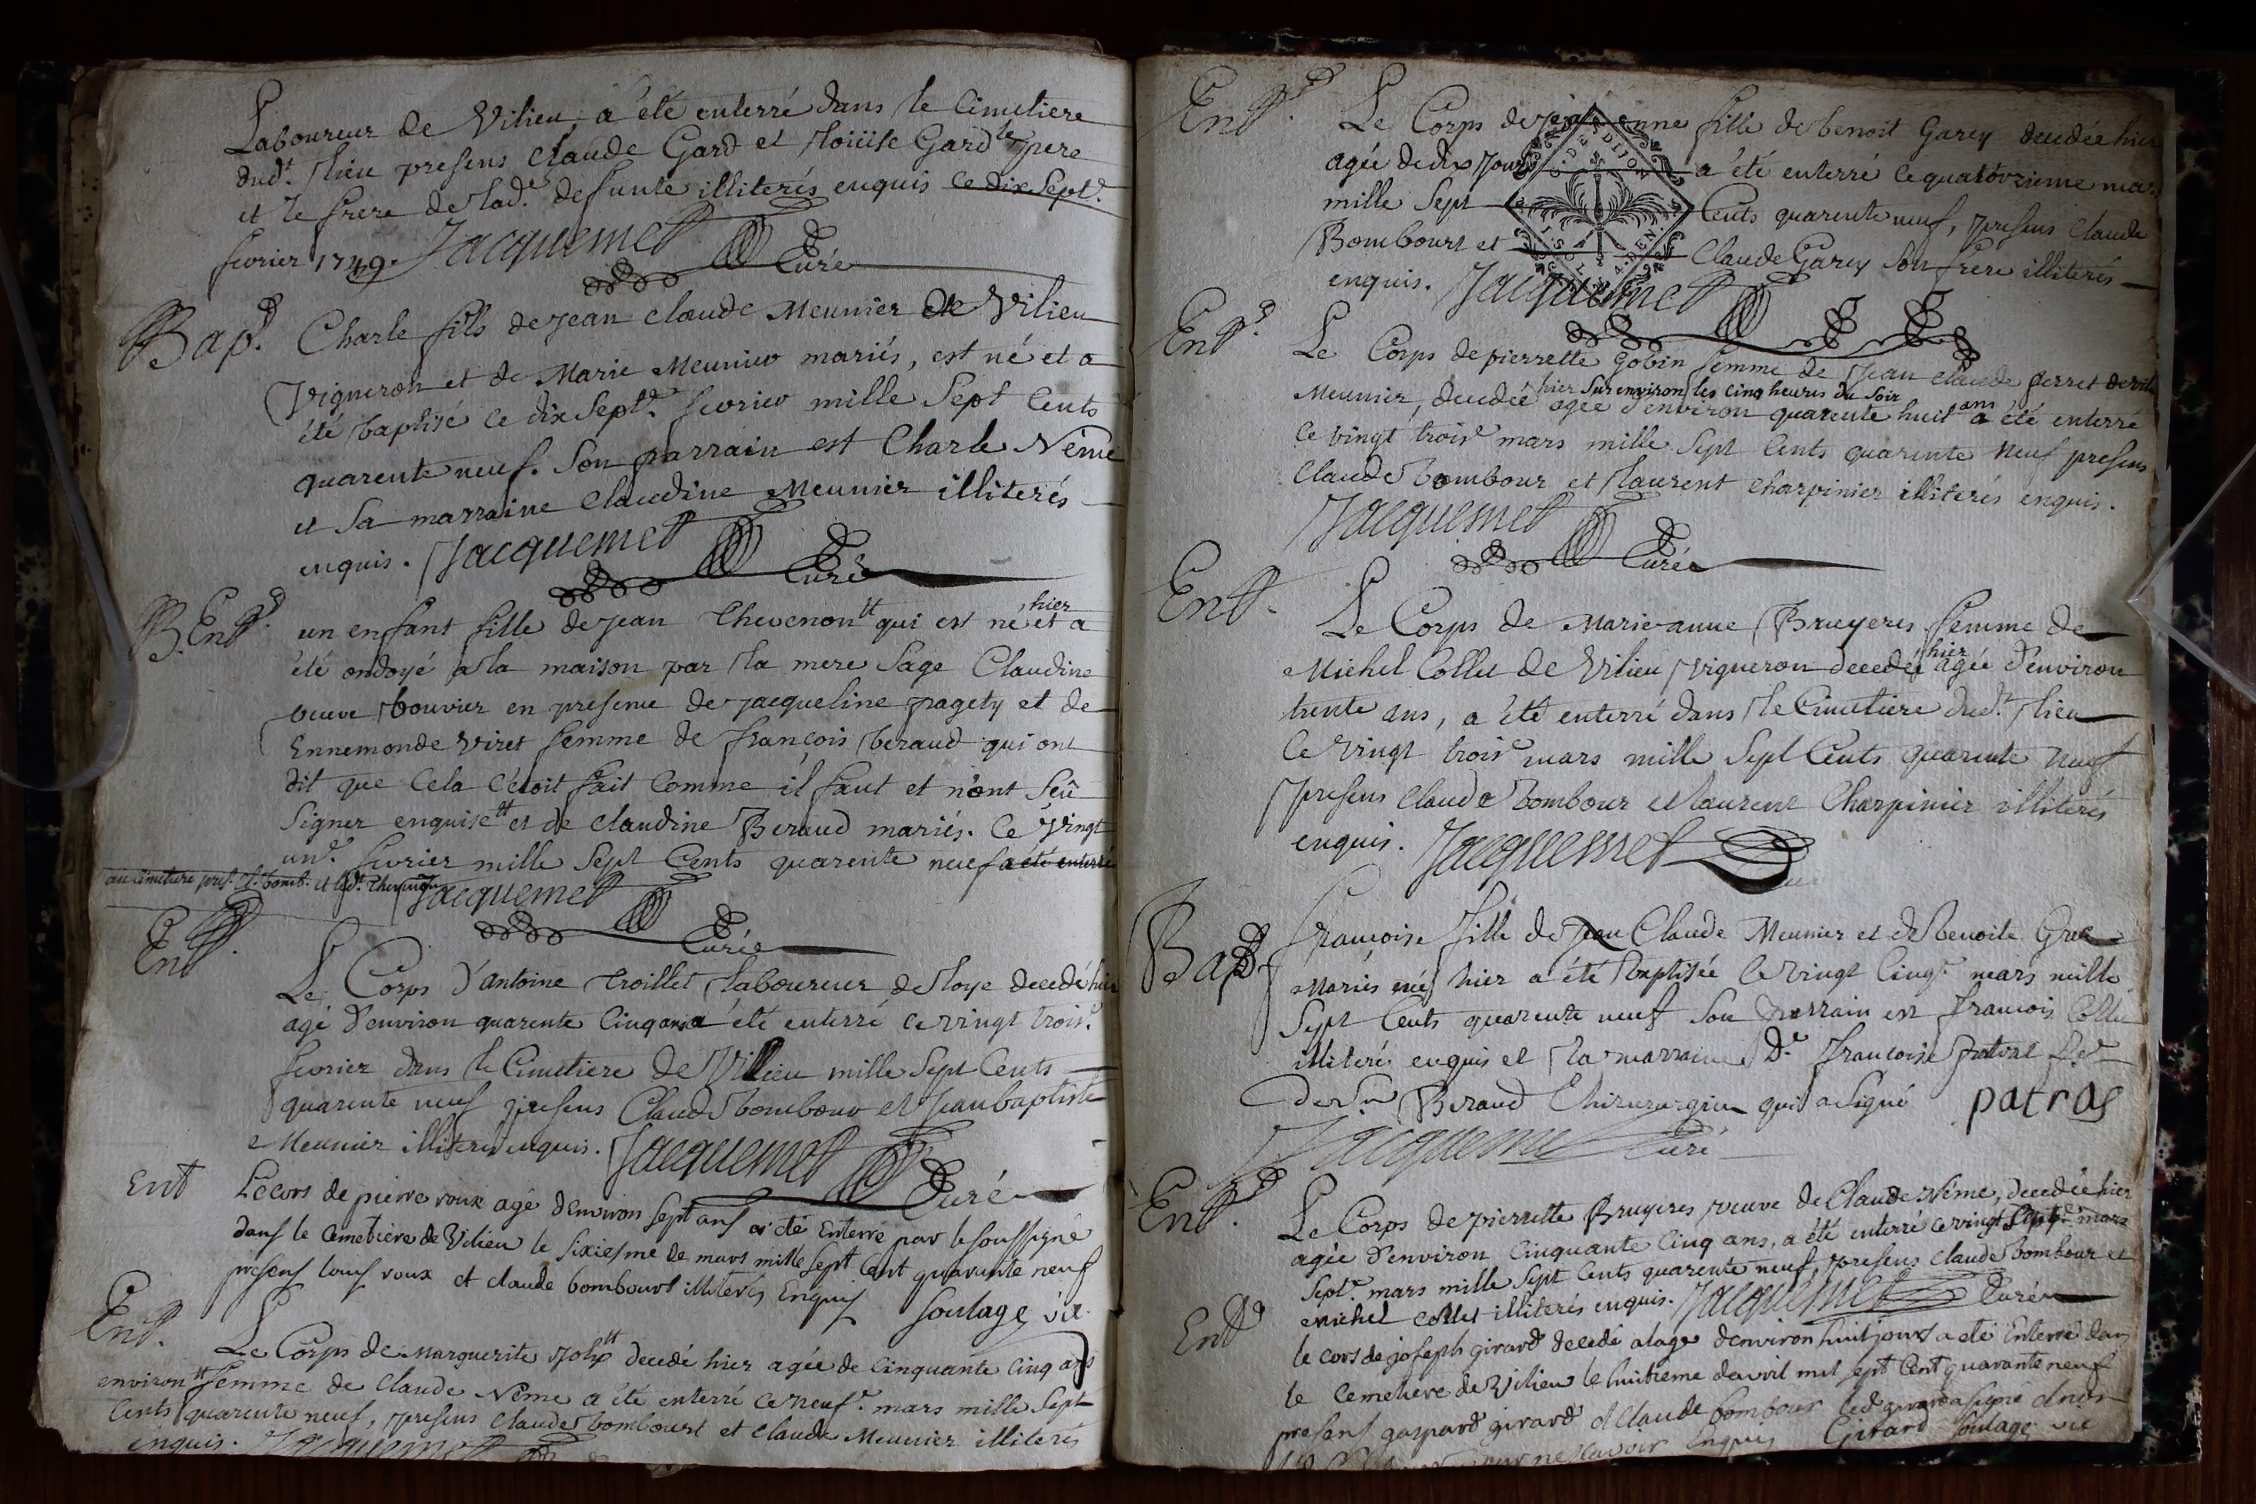 Laboureur de Vilieu, a été enterré dans le Cimetiere
dud.t lieu presens Claude Gard et Loüise Gard le pere
et le frere de lad.e defunte illiterés enquis ce dix Sept.e
fevrier 1749. Jacquemet
Curé
Bap.
Charle fils de Jean Claude Meunier de Vilieu
Vigneron et de Marie Meunier mariés, est né et a
été baptisé ce dix Sept.e fevrier mille Sept Cents
quarente neuf. Son parrain est Charle Nême
et Sa marraine Claudine Meunier illiterés
enquis. Jacquemet
Curé
B. Ent.
hier
un enfant fille de Jean Thevenon qui est né et a
été ondoyé a la maison par la mere Sage Claudine
veuve bouvier en presence de Jacqueline pagety et de
Ennemonde Viret femme de françois beraud qui ont
dit que Cela C'etoit fait Comme il faut et n'ont Seû
Signer enquise et de Claudine Beraud mariés. Ce vingt
un.e fevrier mille Sept Cents quarente neuf a été enterré
au Cimetiere pres. Cl. bomb. et led.t Thevenon
Jacquemet
Curé
Ent.
Le Corps d'antoine Troillet laboureur de Loye decedé hier
agé d'environ quarente Cinq ans a été enterré ce vingt trois.e
fevrier dans le Cimetiere de Vilieu mille Sept Cents
quarente neuf presens Claude bombour et Jean baptiste
Meunier illiterés enquis. Jacquemet
Curé
Ent
Le cors de pierre roux agé d'environ sept ans a eté Enterré par le soussigné
dans le cemetiere de Vilieu le sixiesme de mars mille sept Cent quarante neuf
presens louis roux et claude bombourt illiterés Enquis
soulage vic.
Ent.
Le Corps de Marguerite decedé hier agée de Cinquante Cinq ans
environ femme de Claude Nême a été enterré ce neuf.e mars mille Sept
Cents quarente neuf, presens Claude bombourt et Claude Meunier illiterés
enquis. Jacquemet
Ent.
Le Corps de fille de benoit Garcy decedée hier
agée de dix Jours a été enterré ce quatorzieme mars
mille Sept Cents quarente neuf, presens Claude
Bombourt et Claude Garcy Son frere illiterés
enquis. Jacquemet
DIJON
Ent.
Le Corps de pierrette gobin femme de Jean Claude perret
hier Sur environ les Cinq heures du Soir
Meunier, decedée agée d'environ quarente huit ans a été enterré
Ce vingt trois.e mars mille Sept Cents quarente Neuf presens
Claude bombour et Laurent Charpinier illiterés enquis.
Jacquemet
Curé
Ent.
Le Corps de Marie anne Bruyeres femme de
hier
Michel Collet de Vilieu Vigneron decedée agée d'environ
trente ans, a été enterré dans le Cimetiere dud.t lieu
Ce vingt trois.e mars mille Sept Cents quarente neuf
presens Claude bombour et Laurent Charpinier illiterés
enquis. Jacquemet
Bap.
françoise fille de Jean Claude Meunier et de benoite
Mariés née hier a été baptisée le vingt Cinq.e mars mille
Sept Cents quarente neuf Son parrain est francois Collet
illiteré enquis et la marraine D.e francoise
de S.r Beraud Chirurgien qui a Signé patras
Jacquemet Curé
Ent.
Le Corps de pierrette Bruyeres veuve de Claude Nême, decedée hier
agée d'environ Cinquante Cinq ans, a été enterré ce vingt
Sept.e mars mille Sept Cents quarente neuf presens Claude bombour et
Michel Collet illiterés enquis. Jacquemet
Curé
Ent.
le cors de joseph girard decedé a lage denviron huit jours a eté Enterré dans
le Cemetiere de Vilieu le huitieme davril mil sept Cent quarante neuf
presens gaspard girard et Claude bombour led. girard a signé
ne savoir Enquis Girard soulage vic